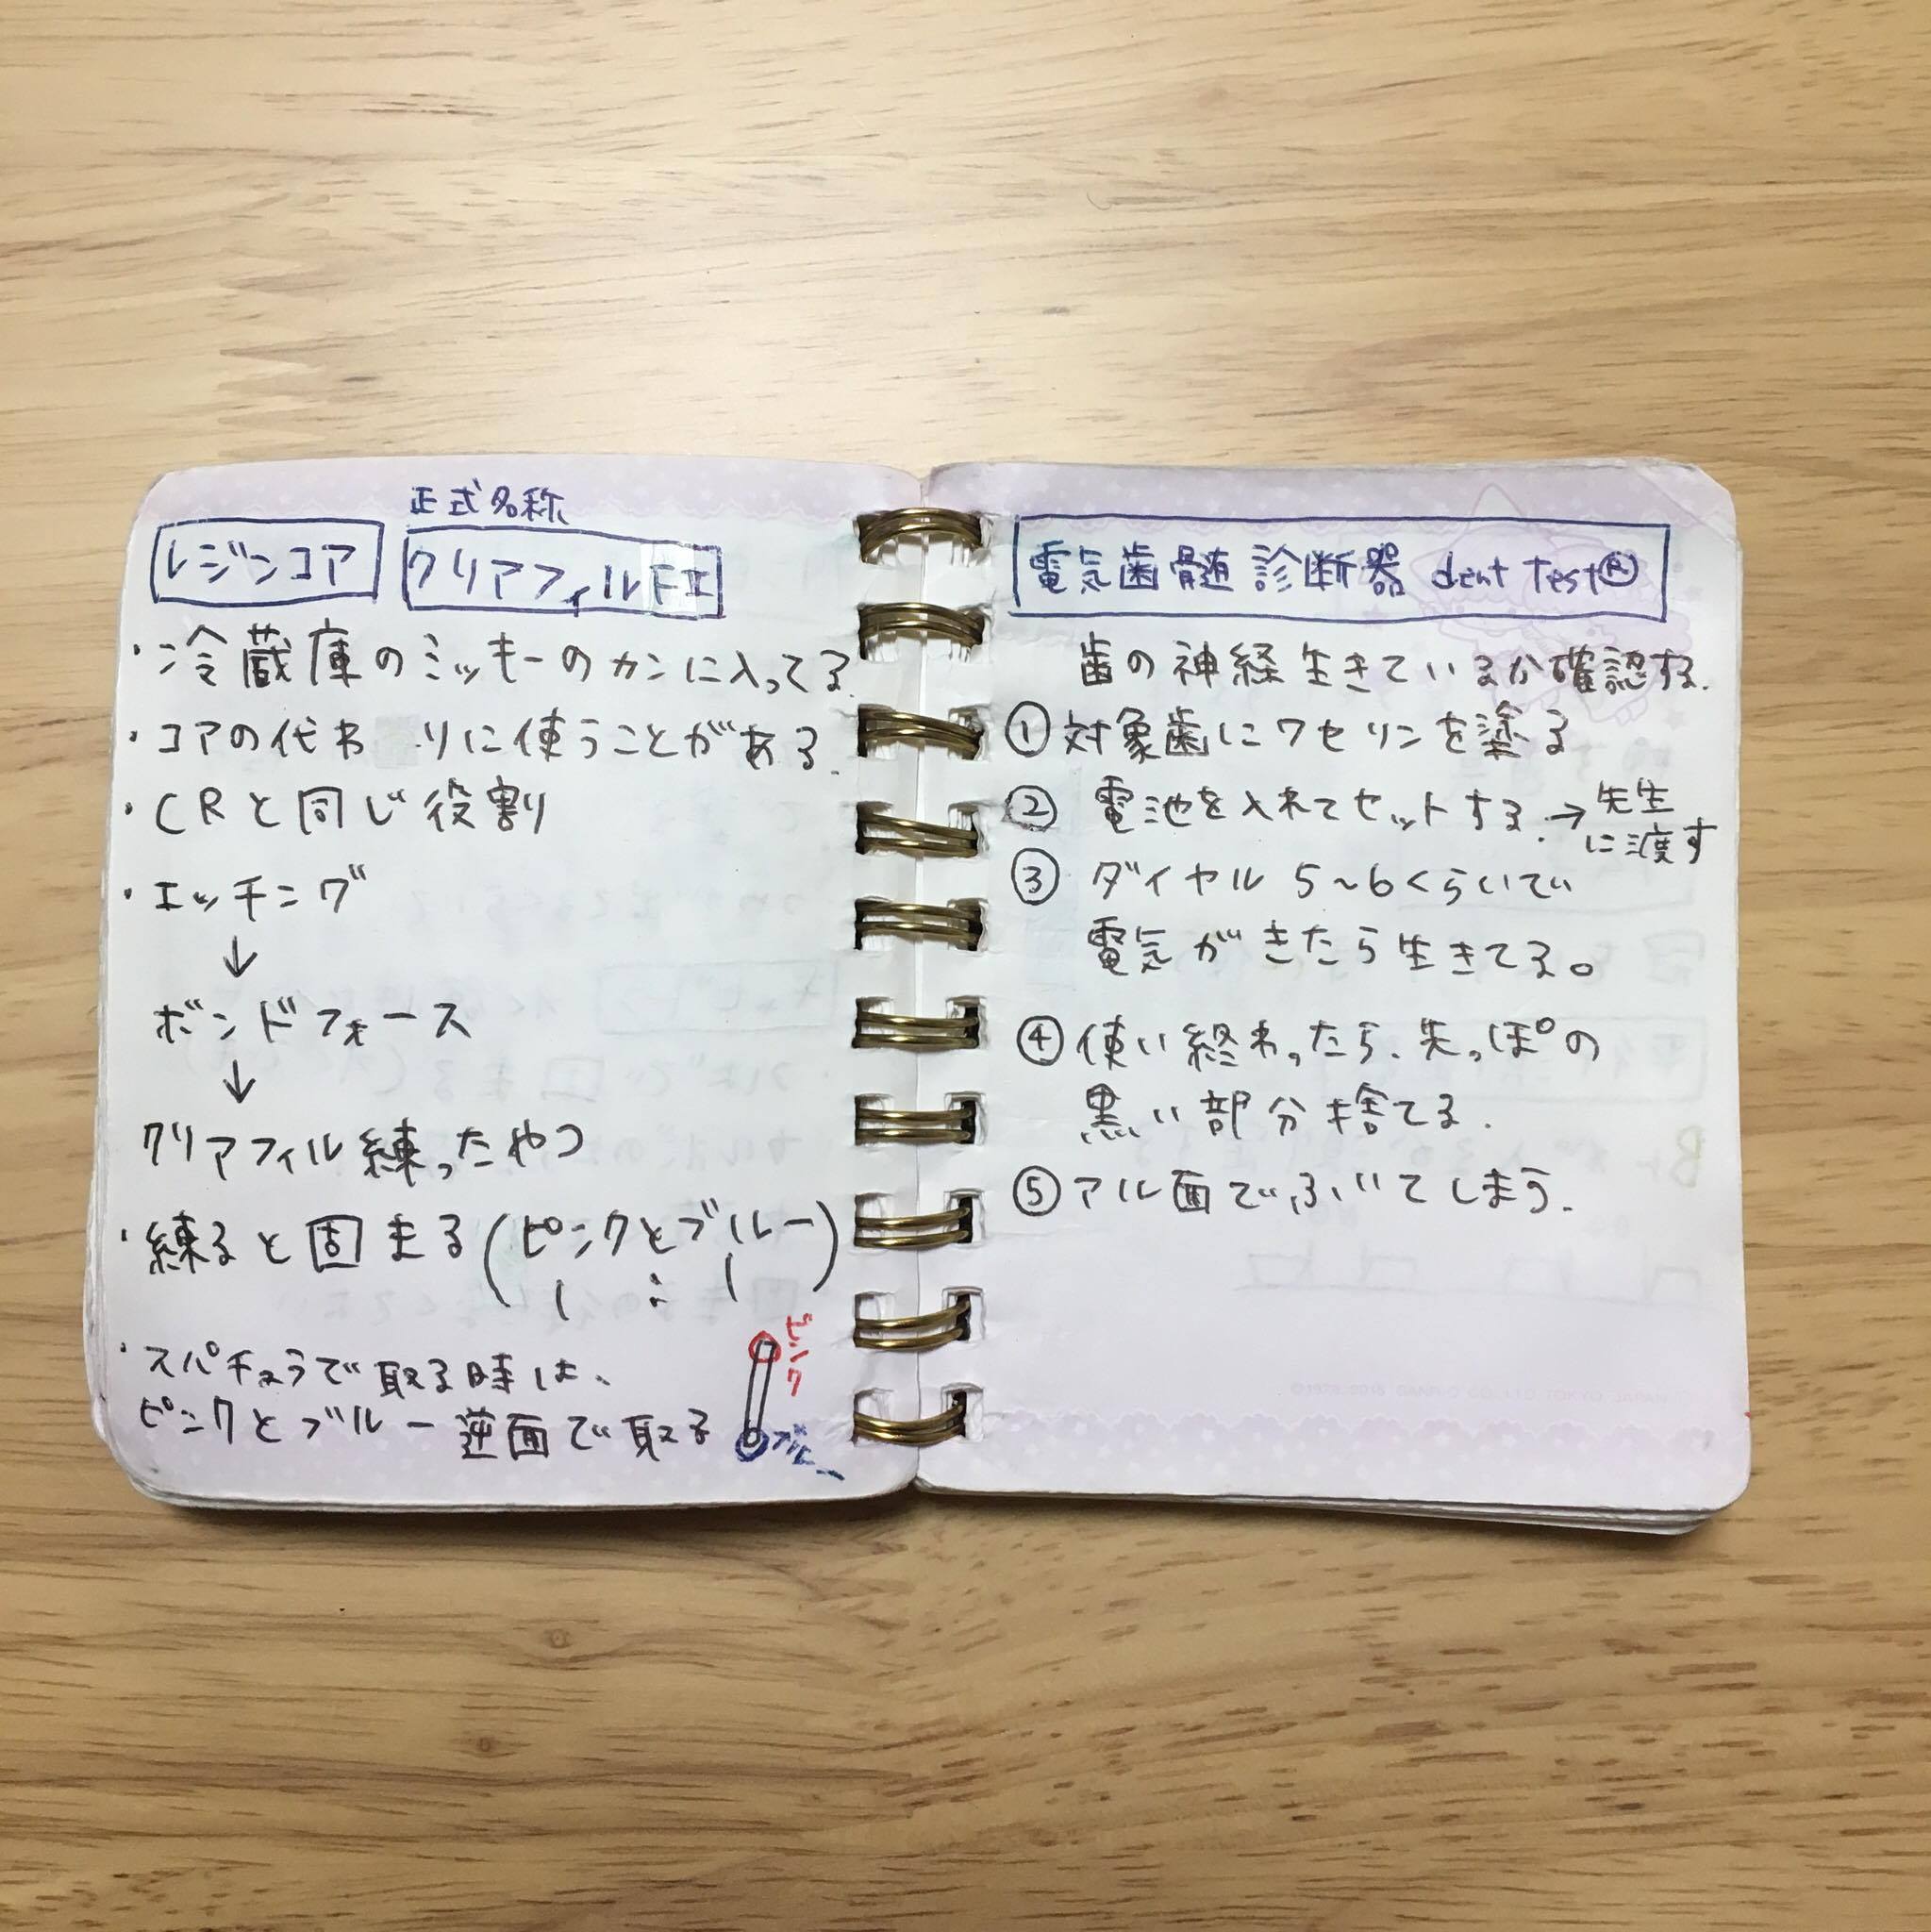 正式名称
レジンコア
クリアフィルFⅡ
・冷蔵庫のミッキーのカンに入ってる.
・コアの代わりに使うことがある.
・CRと同じ役割
・エッチング
↓
ボンドフォース
↓
クリアフィル練ったやつ
・練ると固まる(ピンクとブルー)
1 : 1
・スパチュラで取る時は、
ピンクとブルー逆面で取る
ピンク
ブルー
電気歯髄診断器 dent Test®
歯の神経生きているか確認する.
①対象歯にワセリンを塗る
② 電池を入れてセットする.→先生
に渡す
③ ダイヤル 5〜6くらいで
電気がきたら生きてる。
④使い終わったら、先っぽの
黒い部分捨てる.
⑤アル面でふいてしまう.